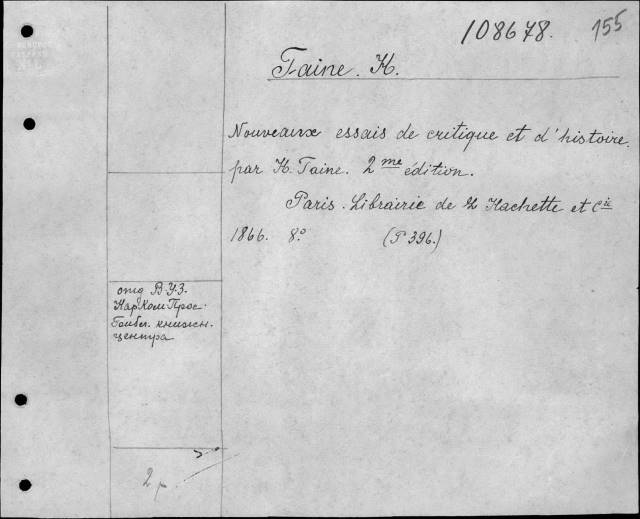 108678. 155
Taine. H.
Nouveaux essais de critique et d'histoire.
par H. Taine. 2me édition.
Paris. Librairie de L Hachette et Cie
1866. 8.° (P 396.)
отд В.У.З.
НарКомПрос.
книжн.
центра
2 р.